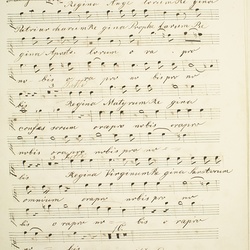 Regina Ange lorum Re
Patriarcharum Re gina Prophe tarum Re
gina Aposto lorum o ra pro
no bis o ra pro no bis pro no
bis Regina Martyrum Re gina
confes sorum ora pro no bis ora pro
nobis ora pro nobis pro no
bis Regina Virginum Re gina Sanctorum
omnium ora pro nobis pro no
bis o ra pro no bis o ra pro
no bis